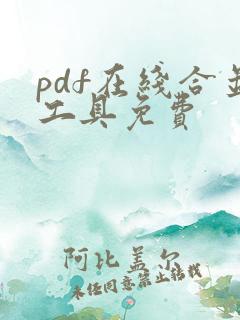 pdf在线合并
工具免费
阿比盖尔
未经同意禁止转载